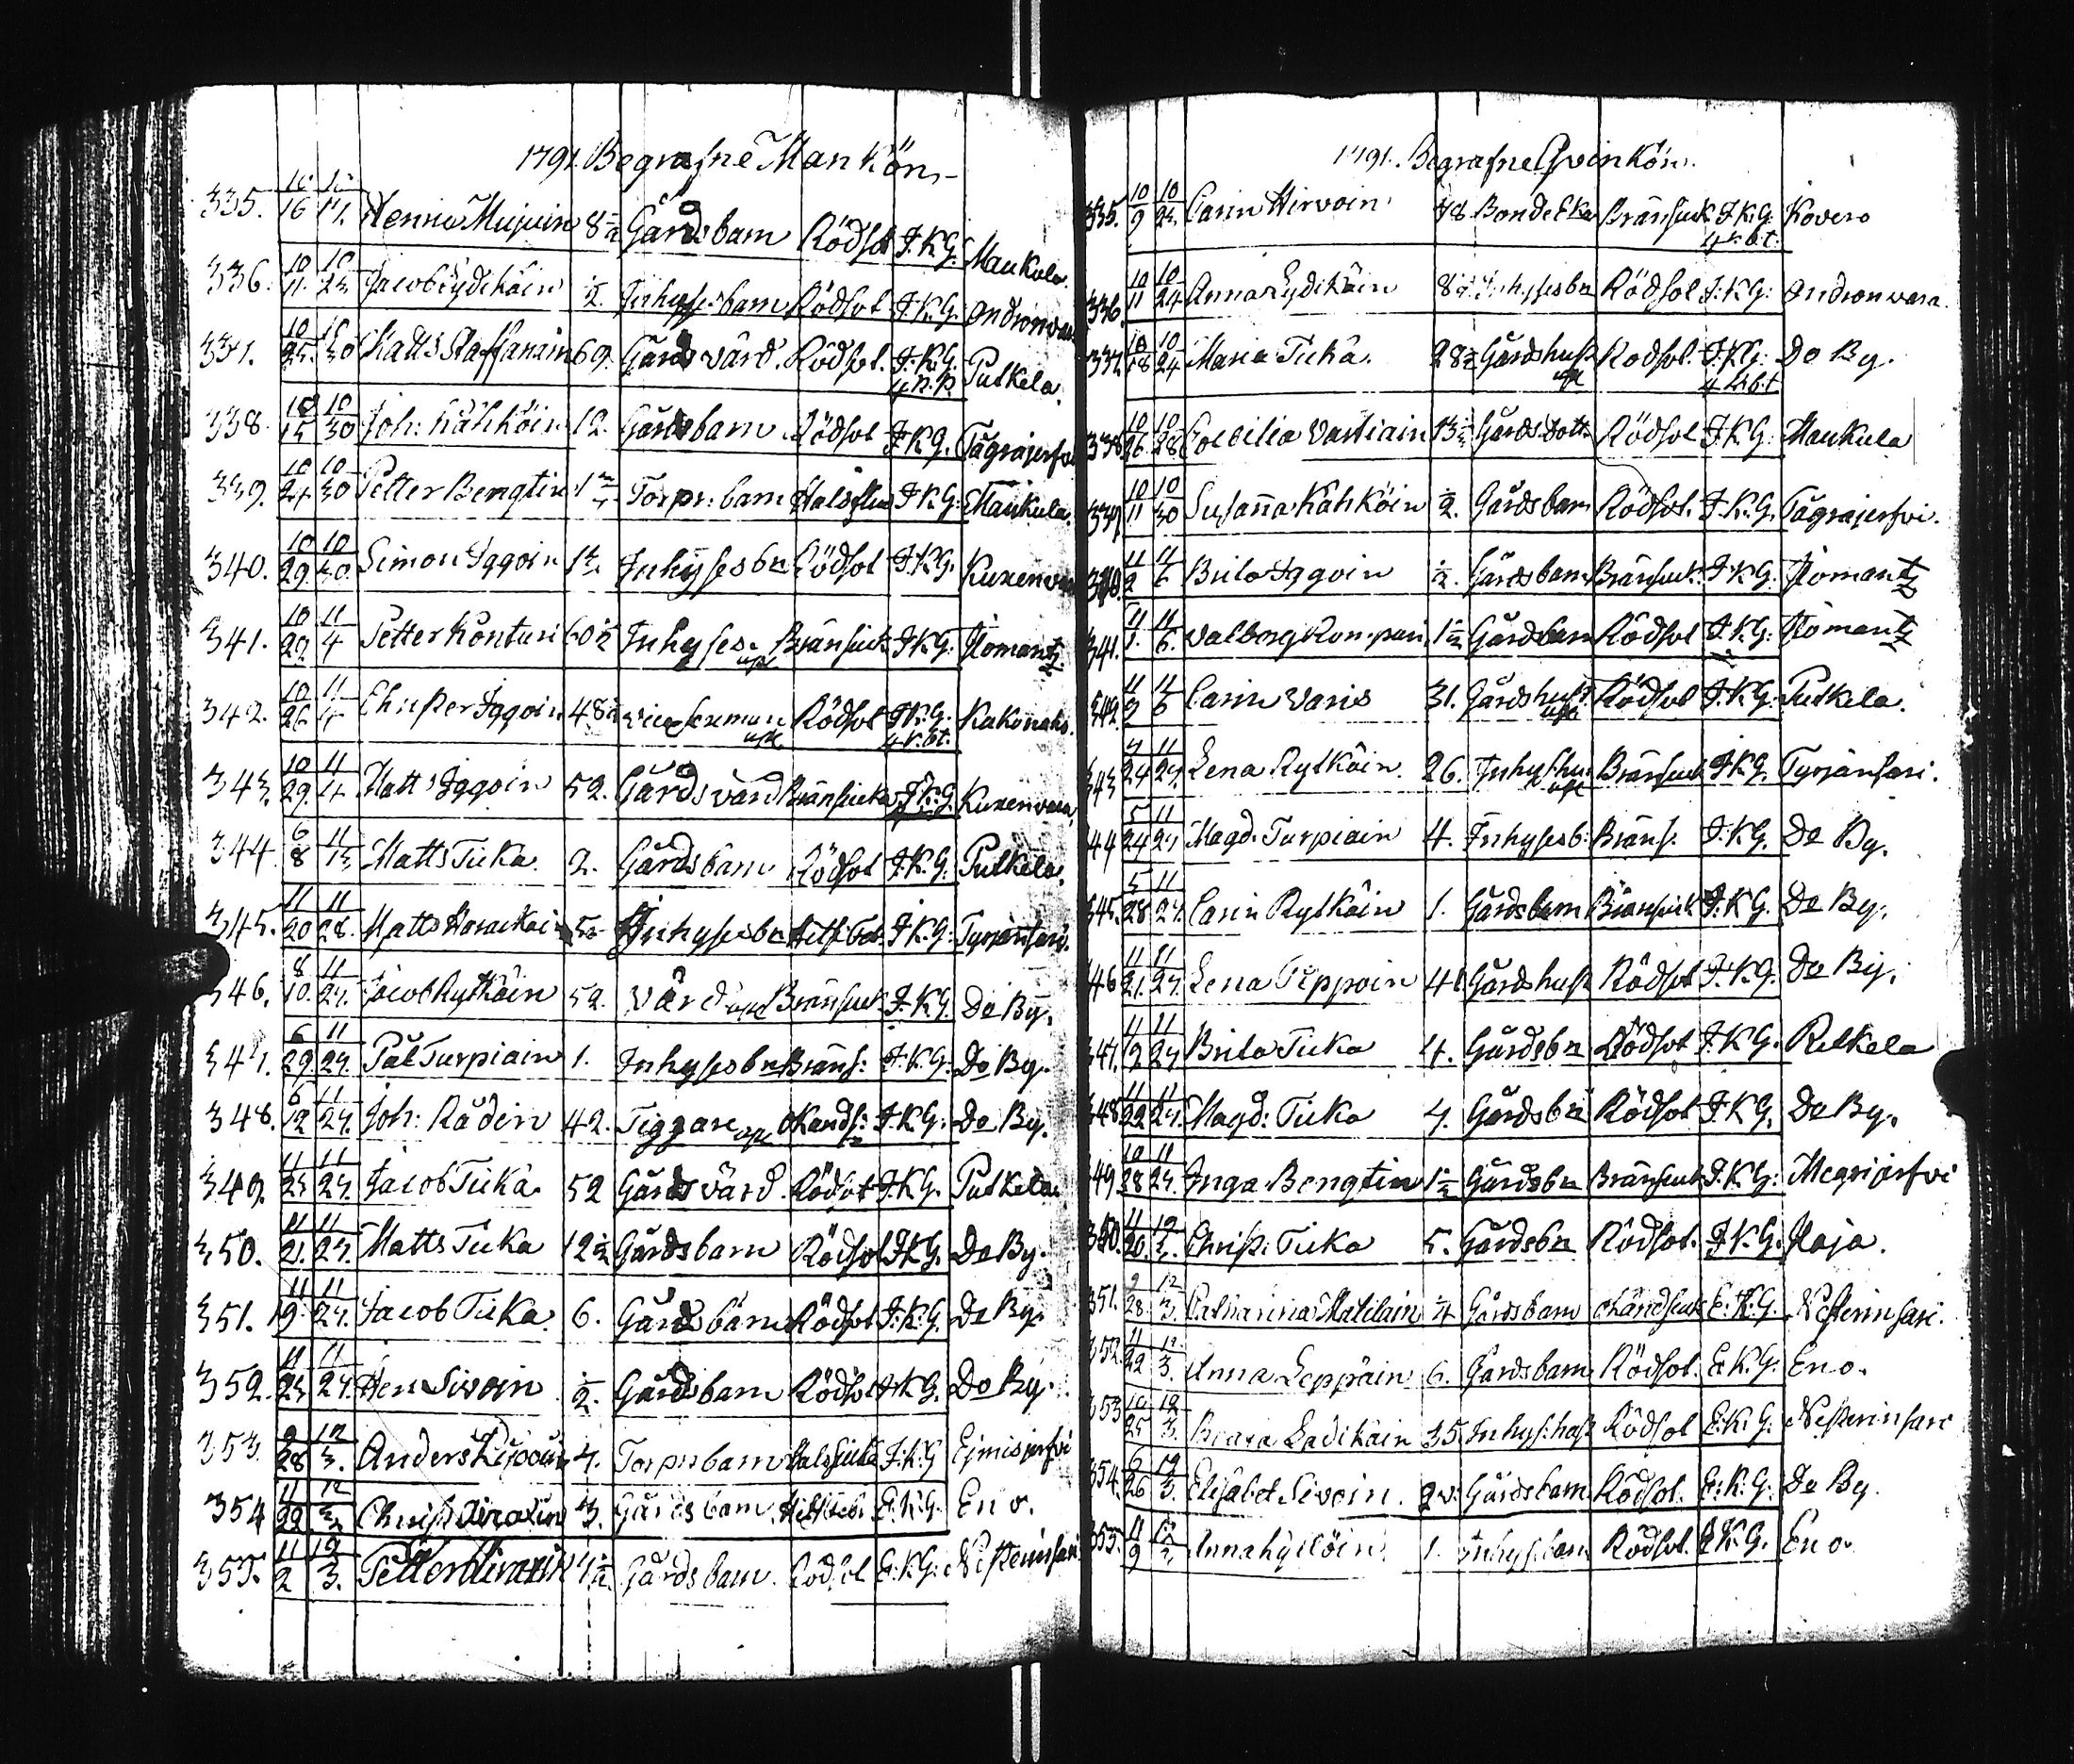 1791. Begrafne Mankön
335. 10/16 10/17. Henric Mujuin 8 1/2 Gårdsbarn Rödsot I.K.G. Maukula.
336. 10/11. 10/23. Jacob Lydikäin 1/2. Inhysesbarn Rödsot I.K.G. Ondronvara
337. 10/25. 10/30 Matts Staffanain 69. Gårds värd. Rödsot. I.K.G. Putkela.
338. 10/15 10/30 Joh: Kähköin 12. Gårdsbarn Rödsot I.K.G. Tägräjerfvi
339. 10/24 10/30 Petter Bengtin Torpr: barn Halssjuk I.K.G: Maukula.
340. 10/29. 10/30. Simon Iggoin Inhysesbn Rödsot I.K.G. Kuxenvara
341. 10/29. 11/4 Petter Konturi 60 1/2 Inhyses Bränsjuk I.K.G. Ilomantz
342. 10/26 11/4 Christer Iggoin 48 Rödsot I.K.G. 4 r. bt.
343. 10/29. 11/4. Matts Iggoin 52. Gårdsvärd Bränsjuka I.K.G. Kuxenvara,
344. 6/8 11/13 Matts Ticka. 2. Gårdsbarn Rödsot I.K.G. Putkela.
345. 11/20 11/28. Matts Inhysesbn I.K.G: Tyrjänsari.
346. 8/10. 11/27. Jacob Rytköin 52. Värd Bränsjuk I.K.G. Do By.
347. 6/29. 11/27. Pål Turpiain 1. Inhysesbn Bräns: I.K.G. Do By.
348. 6/12 11/27. Joh: Rädin 42. Tiggare I.K.G: Do By.
349. 11/23 11/27. Jacob Ticka 52 Gårdsvärd. Rödsot I.K.G. Putkela
350. 11/21. 11/27. Matts Ticka 12 1/2 Gårdsbarn Rödsot I.K.G. Do By.
351. 11/19. 11/27. Jacob Ticka. 6. Gårdsbarn Rödsot I.K.G. Do By.
352. 11/23 11/27. Hen Sivoin 1/2. Gårdsbarn Rödsot I.K.G. Do By.
353. 9/28 12/3. Anders 4. Torprsbarn Halssjuka I.K.G Ejmisjerfvi
354 11/22 12/3 Christ: 3. Gårdsbarn. E.K.G. Eno.
355. 11/2 12/3. Petter Gårdsbarn. Rödsot E.K.G: Nesterinsari
1791. Begrafne Qvinkön.
335. 10/9 10/23. Carin Hirvoin 78 Bonde Enka Bränsjuk I.K.G. 4 r. bt. Kovero
336. 10/11 10/24 Anna Lydikäin Inhysesbn Rödsot I.K.G: Ondronvara.
337. 10/18 10/24 Maria Ticka. 28 1/2 Gårdshust Rödsot. I.K.G. Do By.
338. 10/26. 10/28 Coecilia Vartiain 13 1/2 Gårds Dott. Rödsot I.K.G. Maukula
339. 10/11 10/30 Susanna Kähköin 1/2. Gårdsbarn Rödsot. I.K.G. Tägräjerfvi.
340. 11/2 11/6 Brita Iggoin 1/2. Gårdsbarn Bränsjuk. I.K.G. Ilomantz
341. 11/1. 11/6. Valborg Romppain 1 1/2 Gårdsbarn Rödsot I.K.G: Ilomantz
342. 11/3 11/6 Carin Varis 31. Gårdshust. Rödsot I.K.G: Putkela.
343 4/24 11/27. Lena Rytköin. 26. Inhyshu Bränsjuk I.K.G. Tyrjänsari.
344 5/24 11/27 Magd: Turpiain 4. Inhysesb: Bräns. I.K.G. Do By.
345. 5/28 11/27. Carin Rytköin 1. Gårdsbarn Bränsjuk I.K.G. Do By.
346 11/21. 11/27. Lena Tippoin 41 Gårdshust Rödsot I.K.G. Do By.
347. 11/2 11/27 Brita Ticka 4. Gårdsbn Rödsot I.K.G.
348. 11/22 11/27. Magd: Ticka 7. Gårdsbn Rödsot I.K.G. Do By.
349. 10/28 11/27. Inga Bengtin 1 1/2 Gårdsbn Bränsjuk I.K.G: Megrijerfvi
350. 11/20. 12/3. Christ: Ticka 5. Gårdsbn Rödsot. I.K.G. Maja.
351. 9/28. 12/3. Catharina Matilain 4 Gårdsbarn E.K.G. Nesterinsari.
352. 11/22 12/3. Anna Leppäin 6. Gårdsbarn Rödsot. E.K.G. Eno.
353 10/25 12/3. Ladikain 35 Inhys: hust Rödsot E.K.G. Nesterinsari
354. 6/26 12/3. Elisabet Sivoin. Gårdsbarn Rödsot. E.K.G. Do By.
355. 11/9 12/3. Anna Hyttöin 1. Inhysbarn Rödsot. E.K.G. Eno.